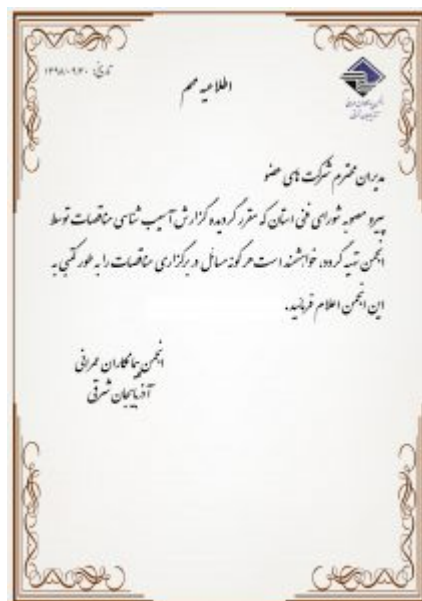 تاریخ: ۱۳۹۸/۰۹/۳۰
انجمن پیمانکاران عمرانی
آذربایجان شرقی
اطلاعیه مهم
مدیران محترم شرکت های عضو
پیرو مصوبه شورای فنی استان که مقرر گردیده گزارش آسیب شناسی مناقصات توسط
انجمن تهیه گردد، خواهشمند است هر گونه مسائل در برگزاری مناقصات را به طور کتبی به
این انجمن اعلام فرمائید.
انجمن پیمانکاران عمرانی
آذربایجان شرقی